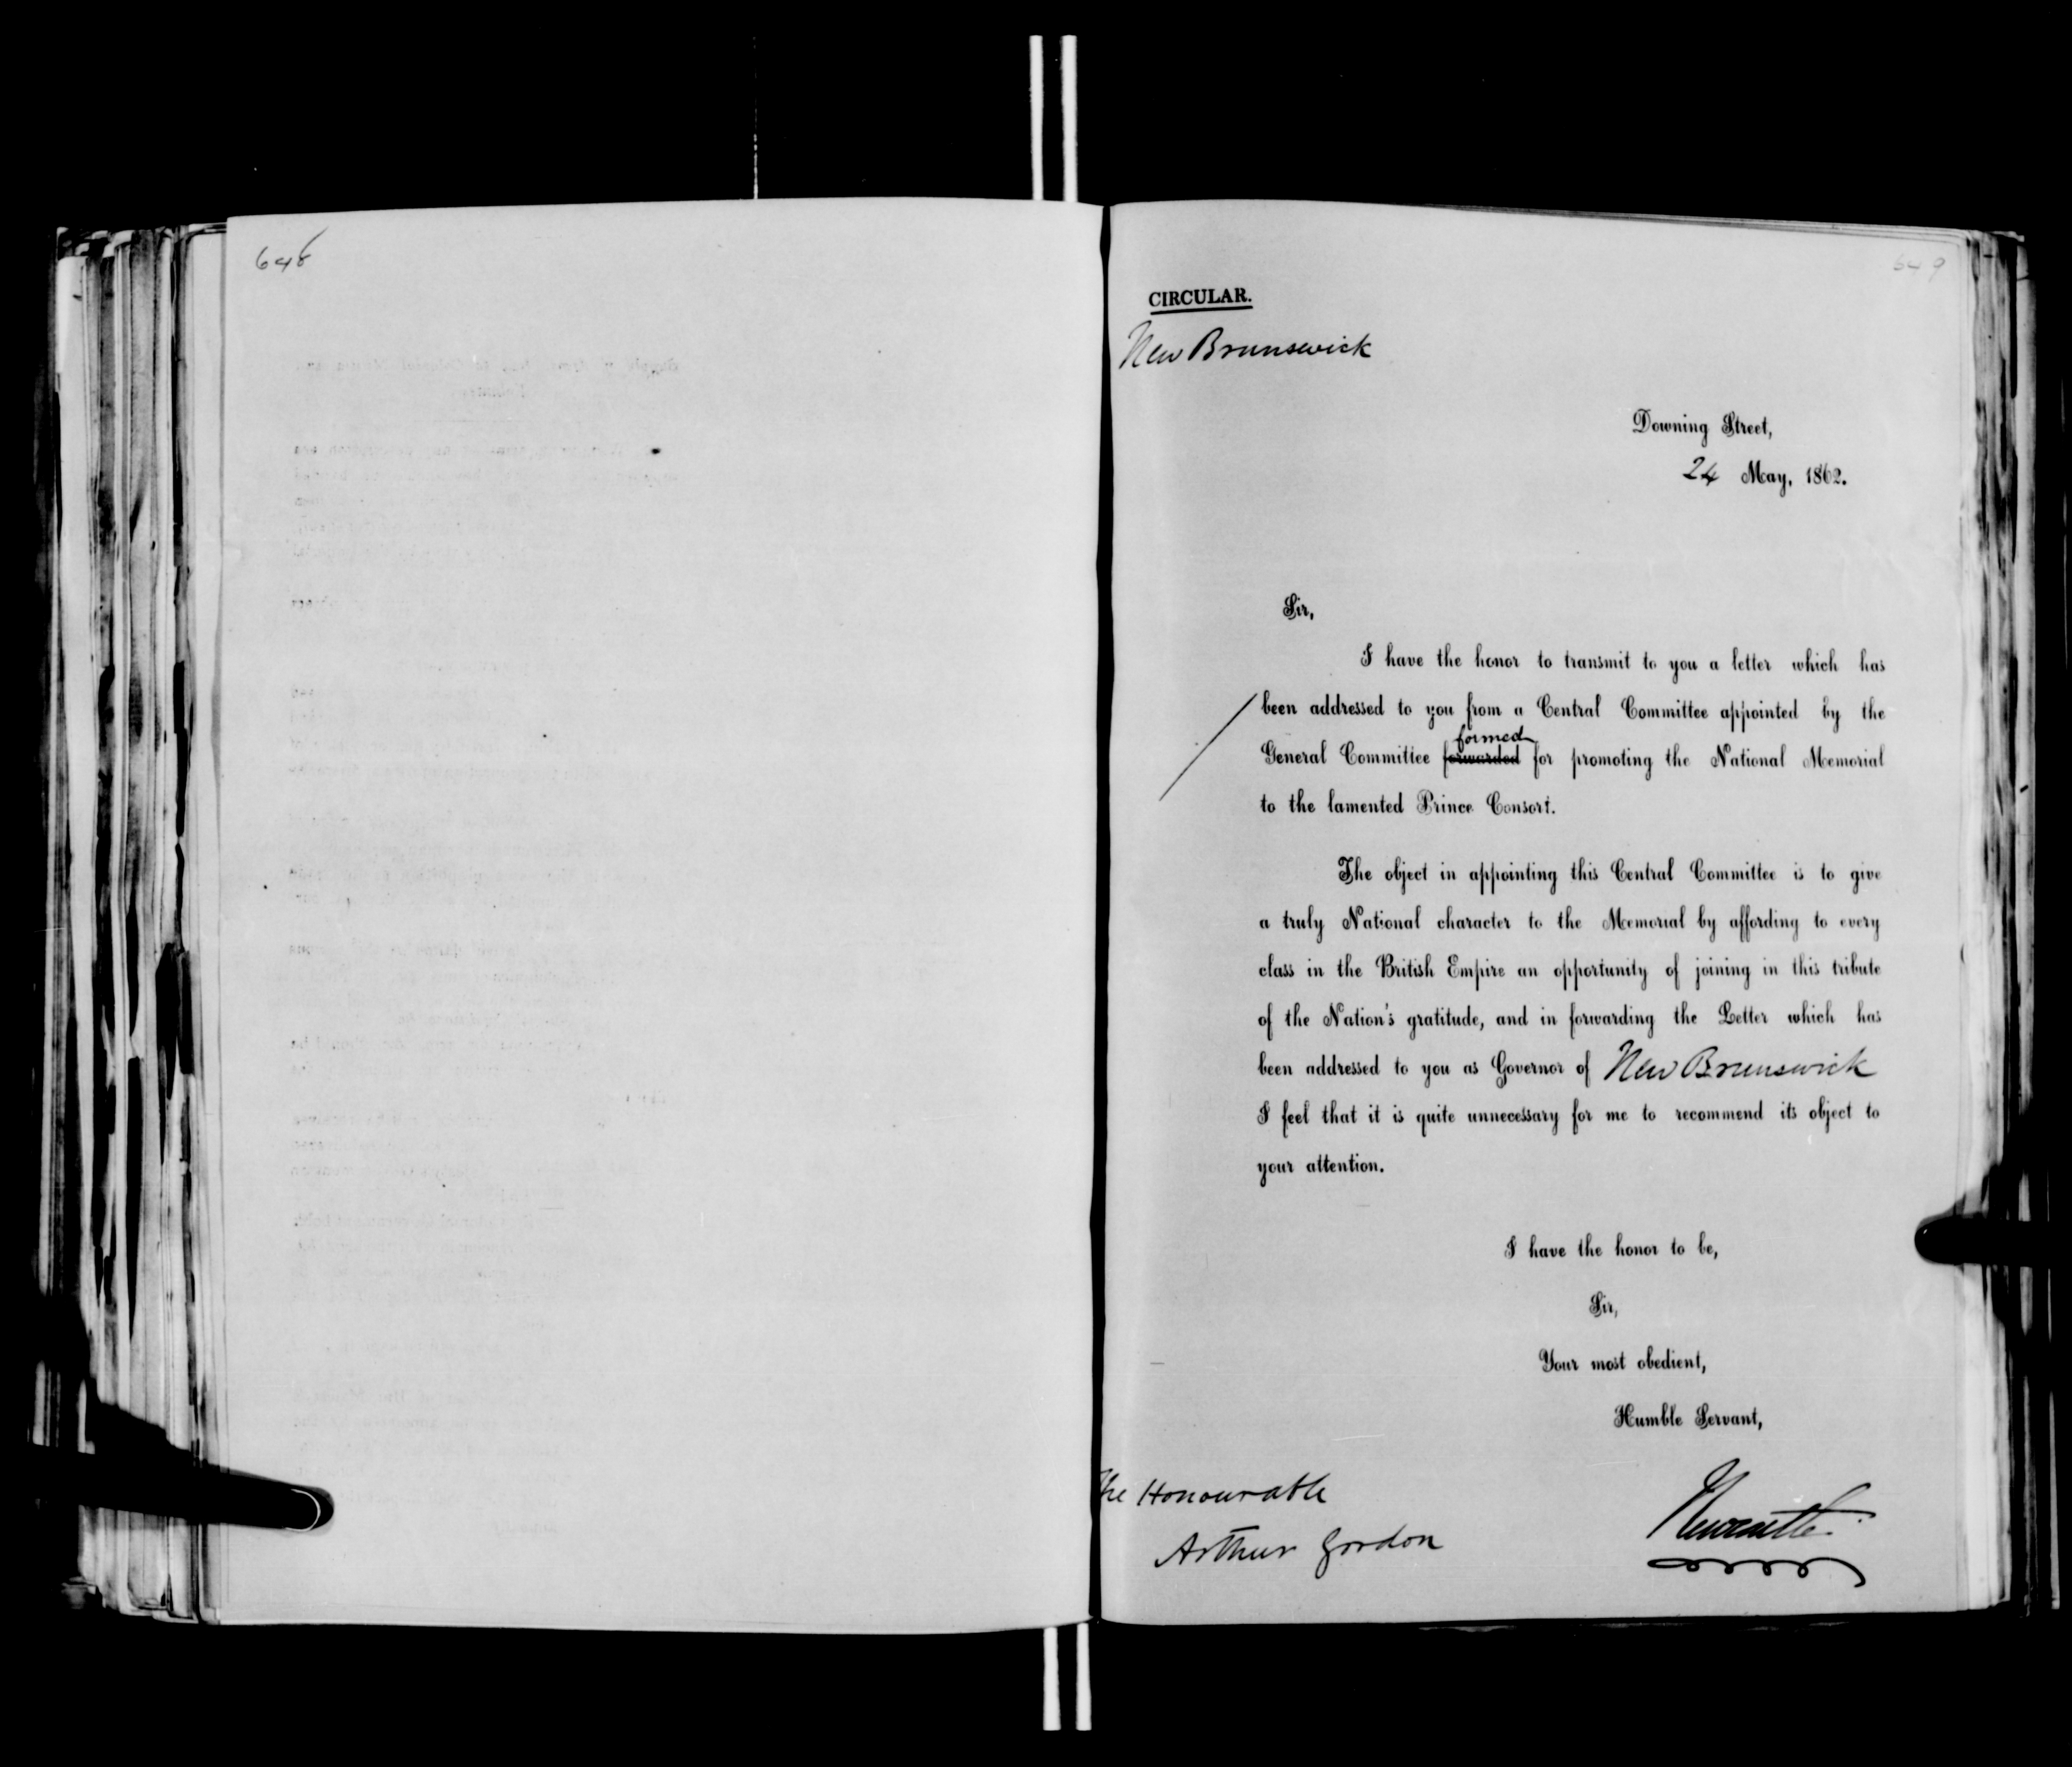 648
649
CIRCULAR.
New Brunswick
Downing Street,
24 May, 1862.
Sir,
I have the honor to transmit to you a letter which has
been addressed to you from a Central Committee appointed by the
formed
General Committee forwarded for promoting the National Memorial
to the lamented Prince Consort.
The object in appointing this Central Committee is to give
a truly National character to the Memorial by affording to every
class in the British Empire an opportunity of joining in this tribute
of the Nation's gratitude, and in forwarding the Letter which has
been addressed to you as Governor of New Brunswick
I feel that it is quite unnecessary for me to recommend its object to
your attention.
I have the honor to be,
Sir,
Your most obedient,
Humble Servant,
Newcastle
The Honourable
Arthur Gordon